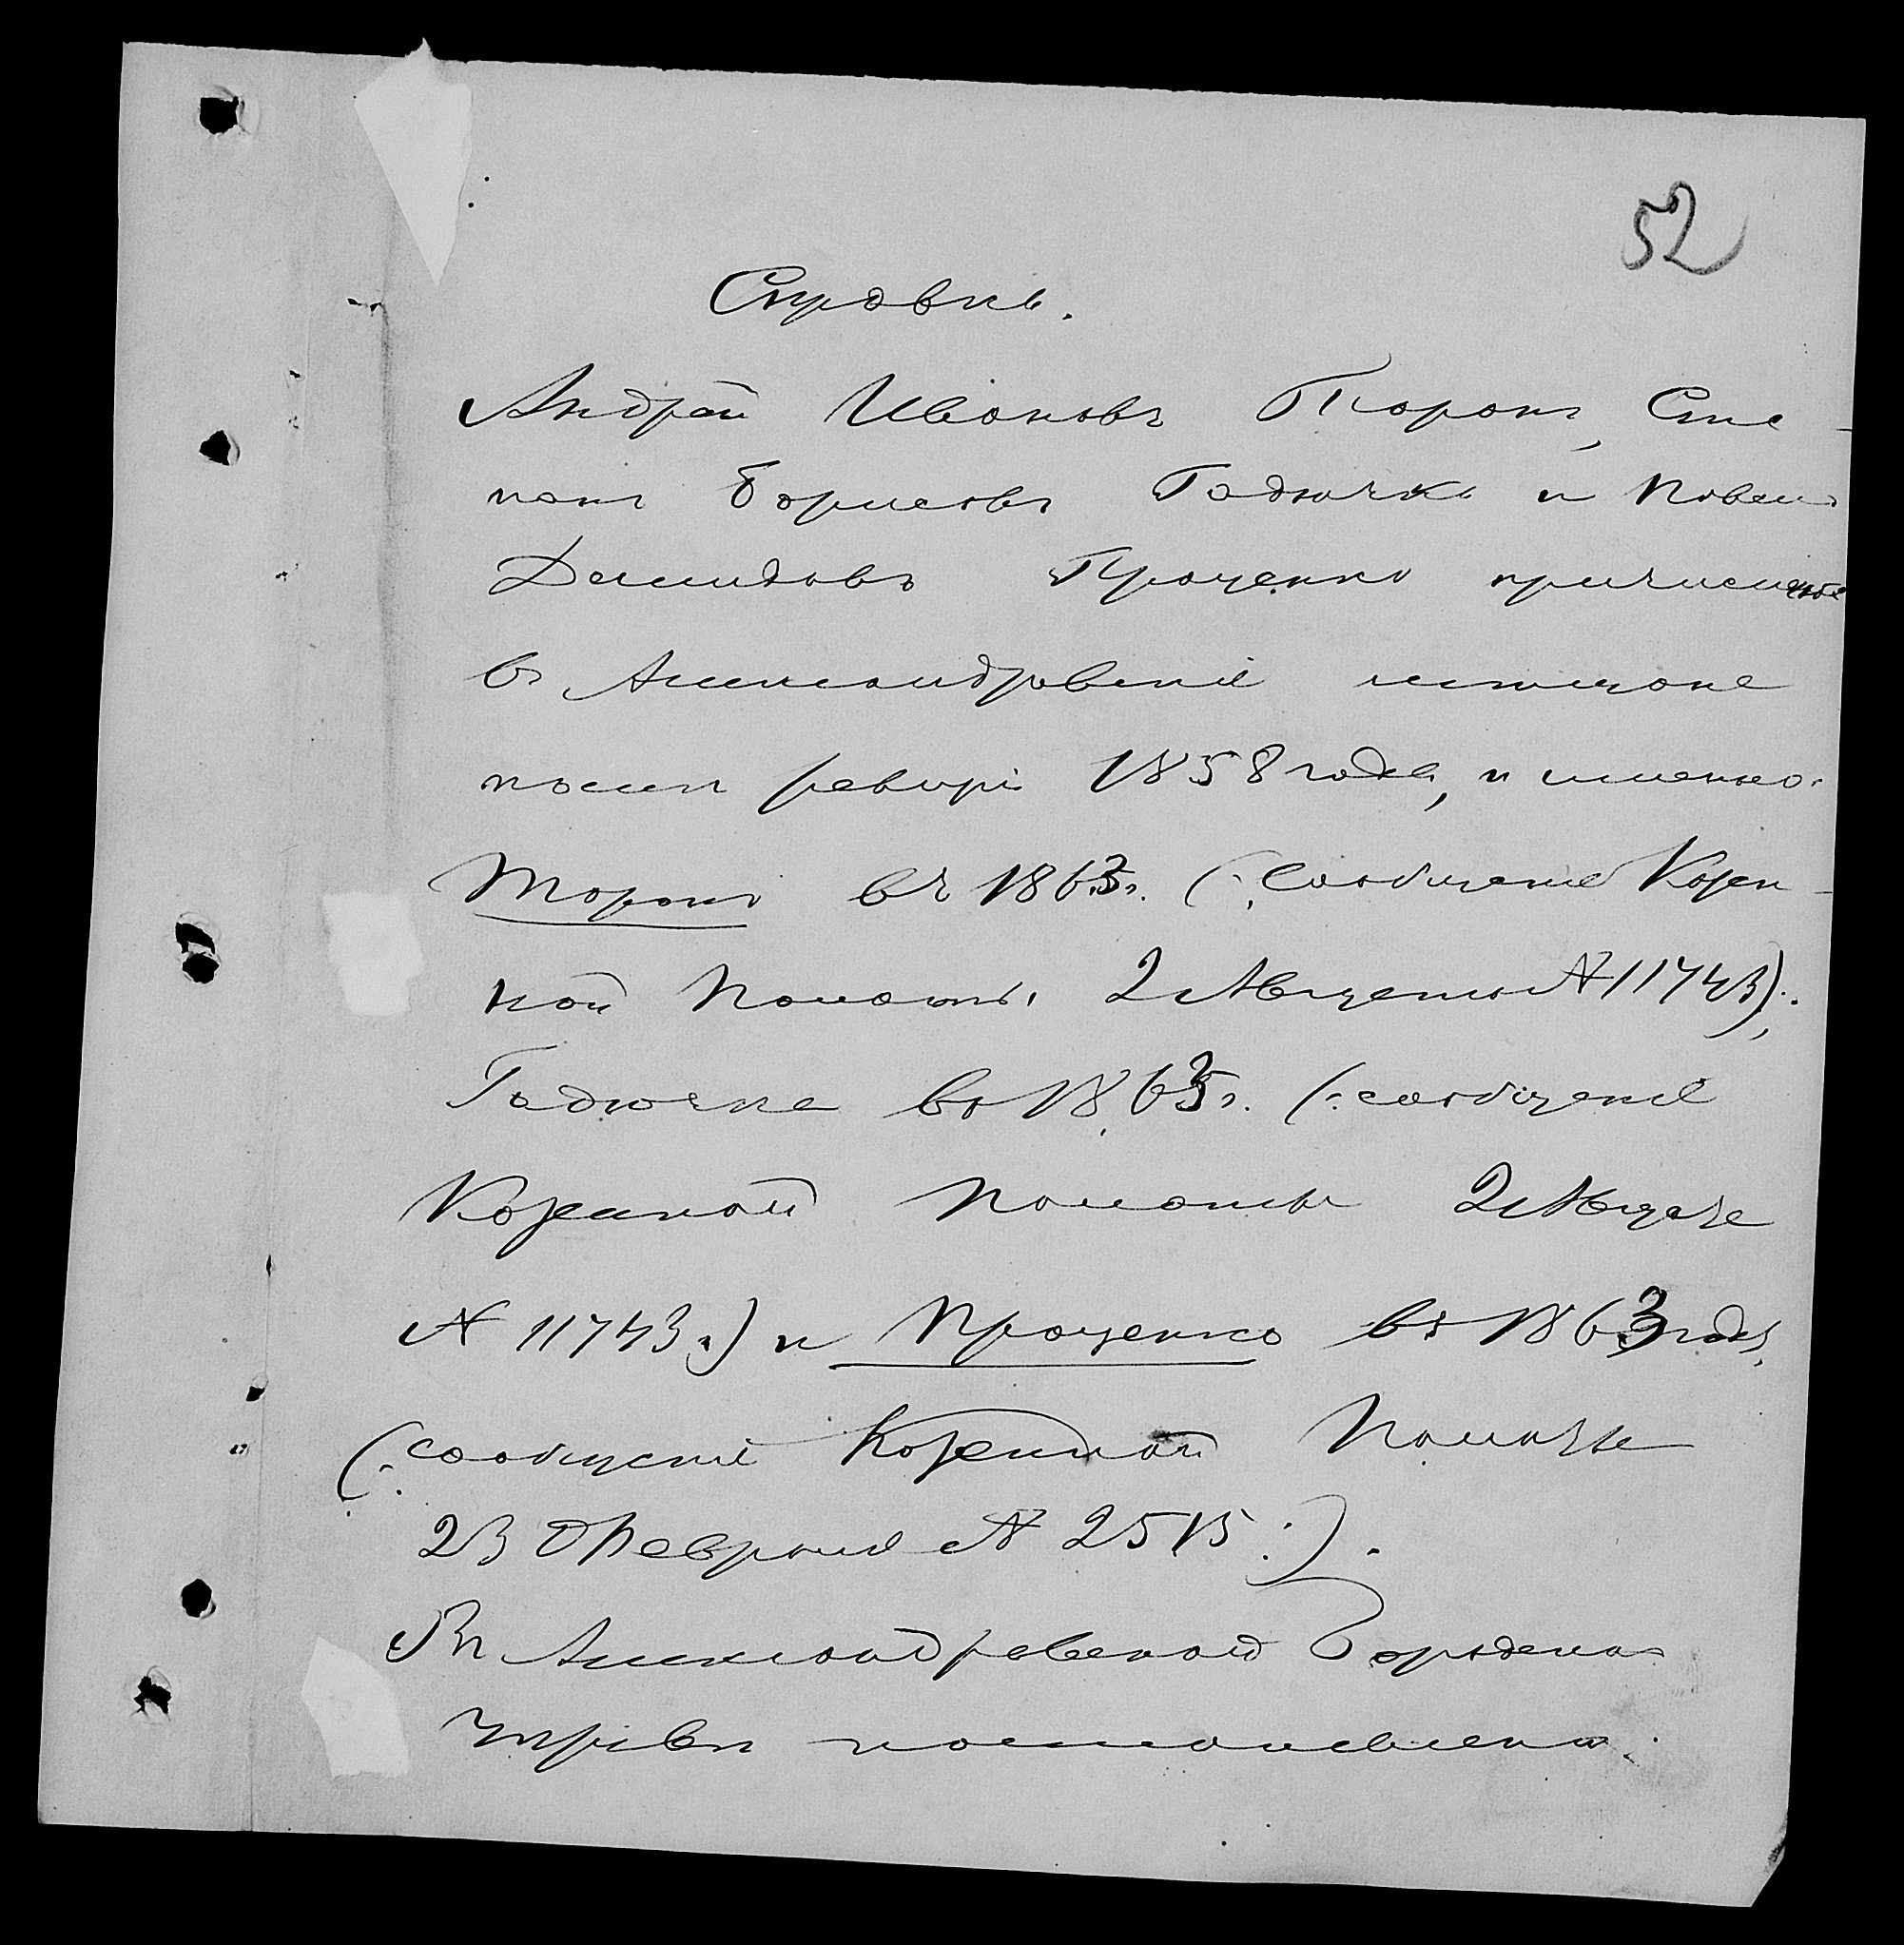 52
Справка.
Андрей Ивановъ Торонъ, Сте-
панъ Борисовъ Гадючка и Павелъ
Демидовъ Проценко причислены
въ Александровскіе мѣщане
послѣ ревизіи 1858 года, и именно:
Торонъ въ 1863 г. (: сообщеніе Казен-
ной Палаты 2 Августа № 11743 :);
Гадючка въ 1863 г. (: сообщеніе
Казенной Палаты 2 Августа
№ 11743 :) и Проценко въ 1863 году,
(: сообщеніе Казенной Палаты
23 Февраля № 2515 :).
Въ Александровской Городской
Управѣ постановлено: